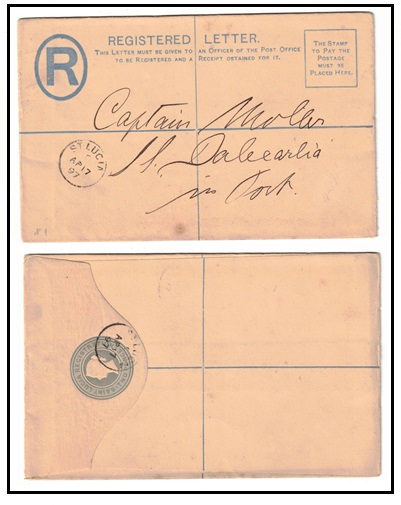 REGISTERED LETTER.
THIS LETTER MUST BE GIVEN TO AN OFFICER OF THE POST OFFICE
TO BE REGISTERED AND A RECEIPT OBTAINED FOR IT.
THE STAMP
TO PAY THE
POSTAGE
MUST BE
PLACED HERE.
R
Captain Moller
St. Dalecarlia
in Port.
ST. LUCIA
AP 17
97